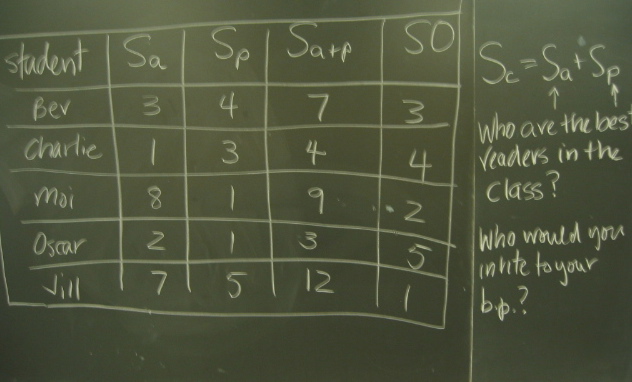 student Sa Sp Sa+p SO
Bev 3 4 7 3
Charlie 1 3 4 4
Moi 8 1 9 2
Oscar 2 1 3 5
Jill 7 5 12 1
Sc = Sa + Sp
↑ ↑
Who are the best
readers in the
class?
Who would you
invite to your
b.p.?